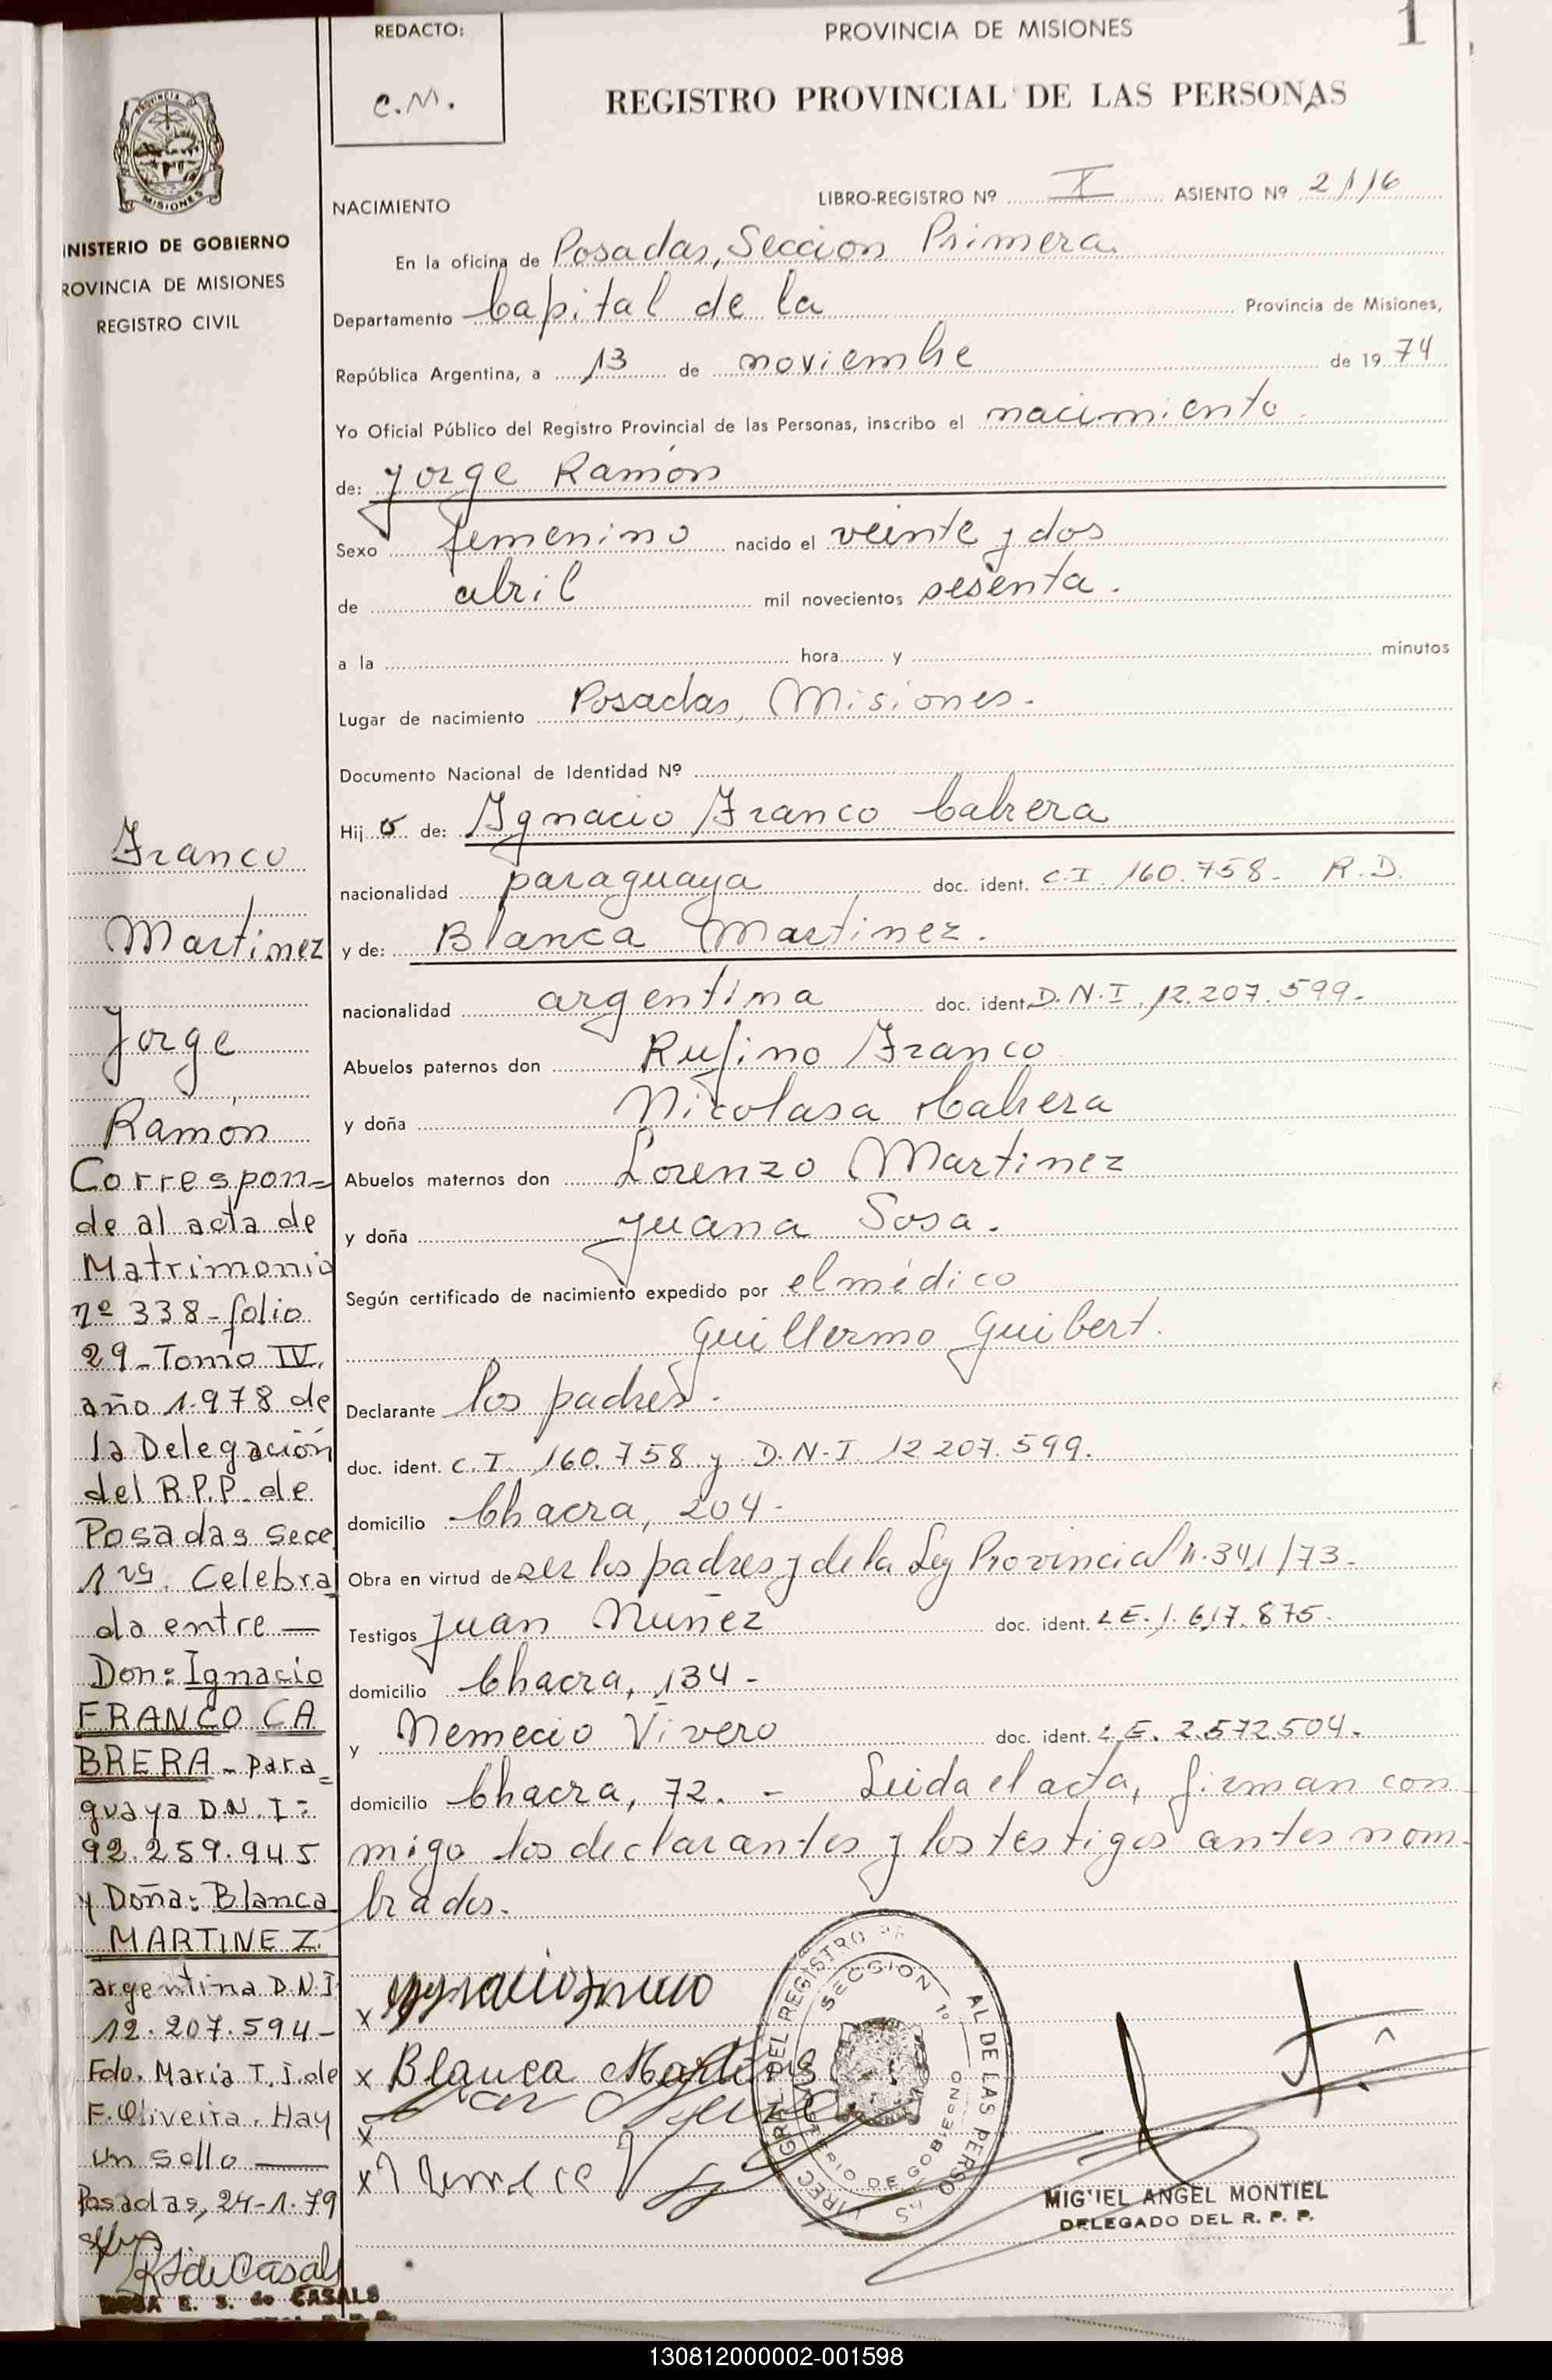 REDACTO:
C.M.
PROVINCIA DE MISIONES
1
REGISTRO PROVINCIAL DE LAS PERSONAS
MISIONES
MINISTERIO DE GOBIERNO
PROVINCIA DE MISIONES
REGISTRO CIVIL
NACIMIENTO
LIBRO-REGISTRO Nº I ASIENTO Nº 2116
En la oficina de Posadas, Seccion Primera
Departamento Capital de la Provincia de Misiones,
República Argentina, a 13 de noviembre de 1974
Yo Oficial Público del Registro Provincial de las Personas, inscribo el nacimiento
de: Jorge Ramón
Sexo femenino nacido el veinte y dos
de abril mil novecientos sesenta.
a la hora y minutos
Lugar de nacimiento Posadas, Misiones.
Documento Nacional de Identidad Nº
Hijo de: Ignacio Franco Cabrera
nacionalidad paraguaya doc. ident. C.I. 160.758- R.D.
y de: Blanca Martinez.
nacionalidad argentina doc. ident. D.N.I. 12.207.599.
Abuelos paternos don Rufino Franco
y doña Nicolasa Cabrera
Abuelos maternos don Lorenzo Martinez
y doña Juana Sosa.
Según certificado de nacimiento expedido por el médico
Guillermo Guibert.
Declarante los padres.
doc. ident. C.I. 160.758 y D.N.I. 12 207.599.
domicilio Chacra, 204-
Obra en virtud de ser los padres y de la Ley Provincial n. 341/73-
Testigos Juan Nuñez doc. ident. L.E. 1.617.875.
domicilio Chacra, 134-
y Nemecio Vivero doc. ident. L.E. 2.572.504-
domicilio Chacra, 72. - Leida el acta, firman con
migo los declarantes y los testigos antes nom-
brados.
Franco
Martinez
Jorge
Ramón
Correspon=
de al acta de
Matrimonio
nº 338-folio
29-Tomo IV.
año 1.978 de
la Delegación
del R.P.P. de
Posadas Secc
1ra. Celebra
da entre —
Don: Ignacio
FRANCO CA
BRERA - para=
guaya D.N.I-
92.259.945
y Doña: Blanca
MARTINEZ.
argentina D.N.I
12.207.594-
Fdo. Maria T. J. de
F. Oliveira. Hay
un sello —
Posadas, 24-1-79
R S de Casals
ROSA E. S. de CASALS
x Ignacio Franco
x Blanca Martinez
x
x
SECCION 1º
MIGUEL ANGEL MONTIEL
DELEGADO DEL R. P. P.
130812000002-001598